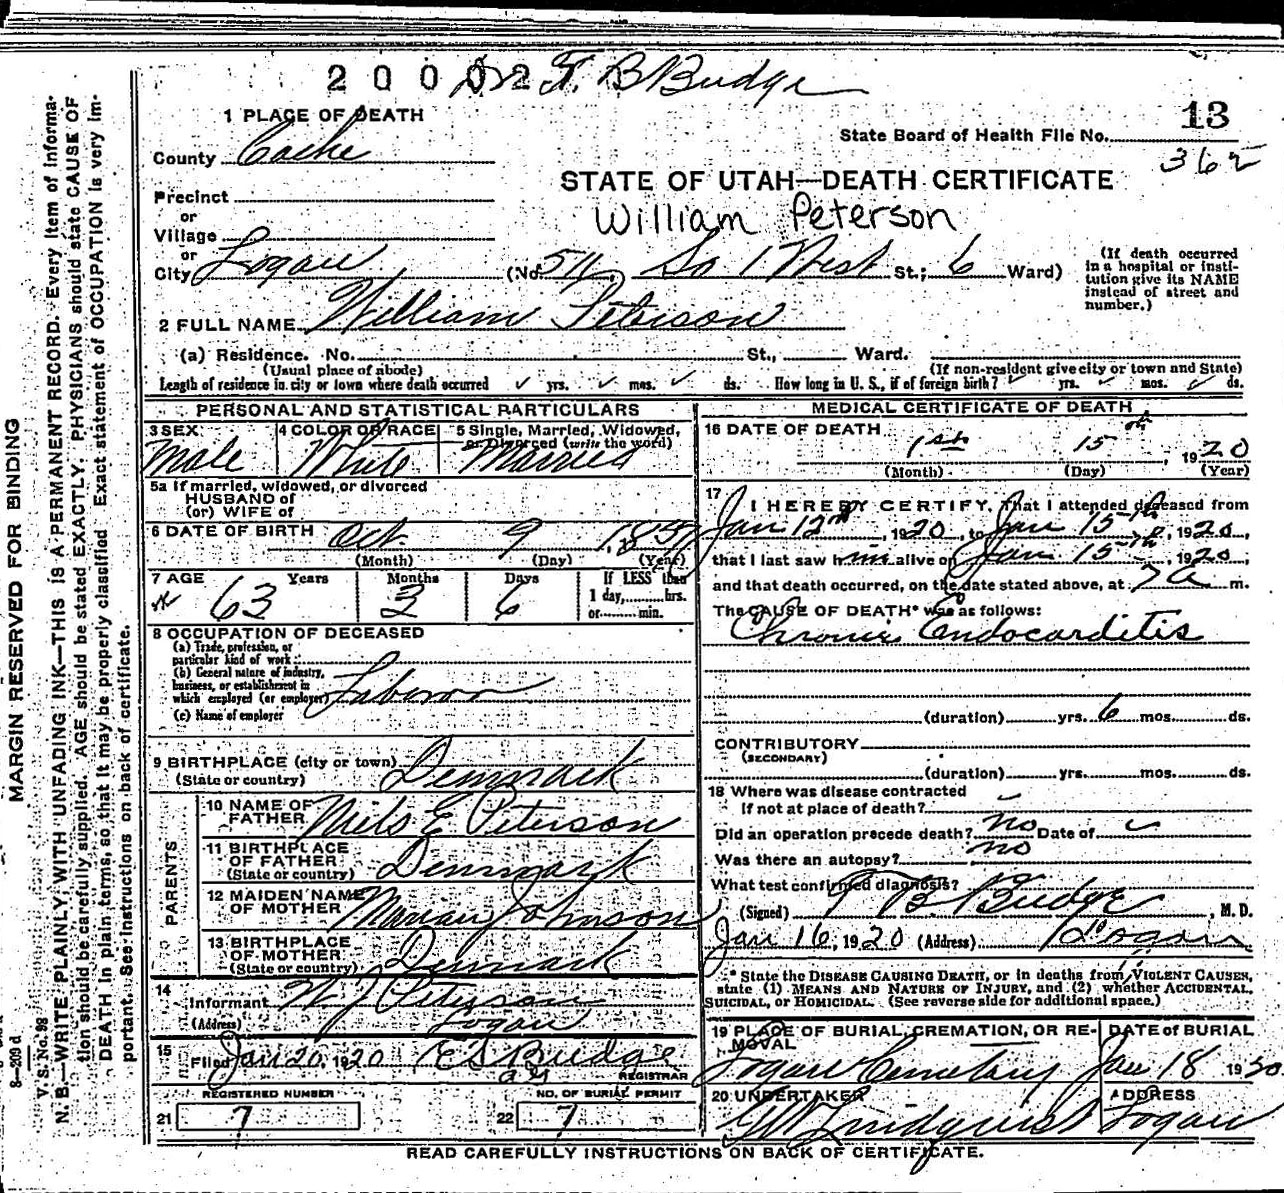 2 0 0 0 2 Dr T. B Budge
1 PLACE OF DEATH
13
State Board of Health File No.
362
County Cache
STATE OF UTAH—DEATH CERTIFICATE
William Peterson
Precinct
or
Village
or
City Logan (No. 511 So 1 West St.; 6 Ward)
(If death occurred
in a hospital or insti-
tution give its NAME
instead of street and
number.)
2 FULL NAME William Peterson
(a) Residence. No. St., Ward.
(Usual place of abode) (If non-resident give city or town and State)
Length of residence in city or town where death occurred ✓ yrs. ✓ mos. ✓ ds. How long in U. S., if of foreign birth? ✓ yrs. ✓ mos. ✓ ds.
PERSONAL AND STATISTICAL PARTICULARS
3 SEX 4 COLOR OR RACE 5 Single, Married, Widowed,
or Divorced (write the word)
Male White Married
5a If married, widowed, or divorced
HUSBAND of
(or) WIFE of
6 DATE OF BIRTH Oct. 9
(Month) (Day) (Year)
7 AGE Years Months Days If LESS than
1 day, hrs.
or min.
63 3 6
8 OCCUPATION OF DECEASED
(a) Trade, profession, or
particular kind of work
(b) General nature of industry,
business, or establishment in
which employed (or employer) Laborer
(c) Name of employer
9 BIRTHPLACE (city or town) Denmark
(State or country)
PARENTS
10 NAME OF
FATHER Niels E Peterson
11 BIRTHPLACE
OF FATHER Denmark
(State or country)
12 MAIDEN NAME
OF MOTHER Marian Johnson
13 BIRTHPLACE
OF MOTHER Denmark
(State or country)
14
Informant W J Peterson
(Address) Logan
15
Filed Jan 20, 1920 E S Budge
REGISTRAR
REGISTERED NUMBER NO. OF BURIAL PERMIT
21 7 22 7
MEDICAL CERTIFICATE OF DEATH
16 DATE OF DEATH
1st 15th, 1920
(Month) (Day) (Year)
17
I HEREBY CERTIFY, That I attended deceased from
Jan 12th, 1920, to Jan 15th, 1920,
that I last saw him alive on Jan 15th, 1920,
and that death occurred, on the date stated above, at 7 a m.
The CAUSE OF DEATH* was as follows:
Chronic Endocarditis
(duration) yrs. 6 mos. ds.
CONTRIBUTORY
(SECONDARY)
(duration) yrs. mos. ds.
18 Where was disease contracted
If not at place of death?
Did an operation precede death? no Date of
Was there an autopsy? no
What test confirmed diagnosis?
(Signed) T B Budge, M. D.
Jan 16, 1920 (Address) Logan
* State the DISEASE CAUSING DEATH, or in deaths from VIOLENT CAUSES,
state (1) MEANS AND NATURE OF INJURY, and (2) whether ACCIDENTAL,
SUICIDAL, or HOMICIDAL. (See reverse side for additional space.)
19 PLACE OF BURIAL, CREMATION, OR RE-
MOVAL
Logan Cemetery
DATE of BURIAL
Jan 18 1920
20 UNDERTAKER ADDRESS
Lindquist Logan
READ CAREFULLY INSTRUCTIONS ON BACK OF CERTIFICATE.
MARGIN RESERVED FOR BINDING
V. S. No. 98
8—209 d
N. B.—WRITE PLAINLY, WITH UNFADING INK—THIS IS A PERMANENT RECORD. Every item of informa-
tion should be carefully supplied. AGE should be stated EXACTLY. PHYSICIANS should state CAUSE OF
DEATH in plain terms, so that it may be properly classified. Exact statement of OCCUPATION is very im-
portant. See instructions on back of certificate.